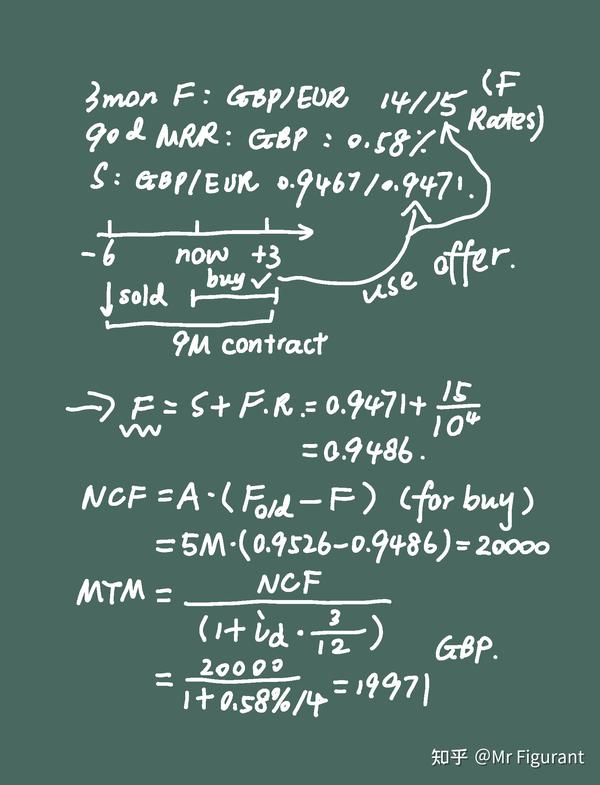 3mon F: GBP/EUR 14/15 (F Rates)
90d MRR: GBP: 0.58%
S: GBP/EUR 0.9467/0.9471.
-6 now +3
↓sold buy ✓ use offer.
9M contract
→ F = S + F.R. = 0.9471 + 15/10⁴
= 0.9486.
NCF = A·(Fold - F) (for buy)
= 5M·(0.9526-0.9486) = 20000
MTM = NCF / (1 + id · 3/12)
= 20000 / 1+0.58%/4 = 19971 GBP.
知乎 @Mr Figurant